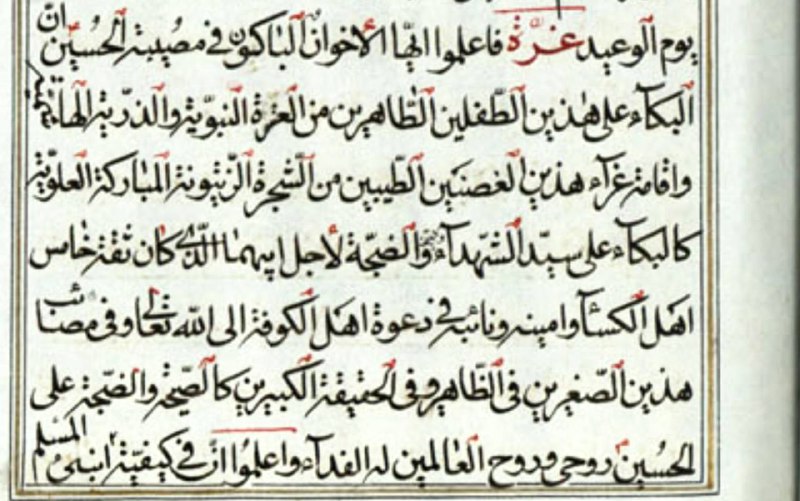 يوم الوعيد غرّة فاعلموا ايّها الاخوان الباكون في مصيبة الحسين انّ
البكآء على هذين الطّفلين الطّاهرين من العترة النبويّة والذرّية الهاشمية
واقامة عزآء هذين الغصنين الطيبين من الشّجرة الزّيتونة المباركة العلويّة
كالبكآء على سيّد الشّهدآء والضجّة لاجل ابيهما الّذى كان ثقة خامس
اهل الكسآء وامينه ونائبه في دعوة اهل الكوفة الى الله تعالى وفى مصائب
هذين الصّغيرين فى الظّاهر وفى الحقيقة الكبيرين كالصّيحة والضجّة على
الحسين روحى وروح العالمين له الفدآء واعلموا انّ في كيفيّة ابنىْ المسلم